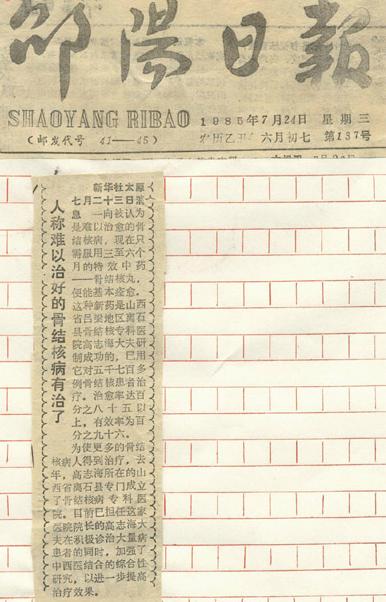 邵阳日报
SHAOYANG RIBAO
1985年7月24日 星期三
(邮发代号 41—45) 农历乙丑年六月初七 第187号
人称难以治好的骨结核病有治了
新华社太原
七月二十三日
息 一向被认为
是难以治愈的骨
结核病，现在只
需服用三至六个
月的特效中药
——骨结核丸，
便能基本痊愈。
这种新药是山西
省吕梁地区离石
县骨结核专科医
院高志海大夫研
制成功的，已用
它对五千七百多
例骨结核患者治
疗。治愈率达百
分之八十五以
上，有效率为百
分之九十六。
为使更多的骨结
核病人得到治疗，去
年，高志海所在的山
西省离石县专门成立
了骨结核病专科医
院。目前已担任这家
医院院长的高志海大
夫在积极诊治大量病
患者的同时，加强了
中西医结合的综合性
研究，以进一步提高
治疗效果。